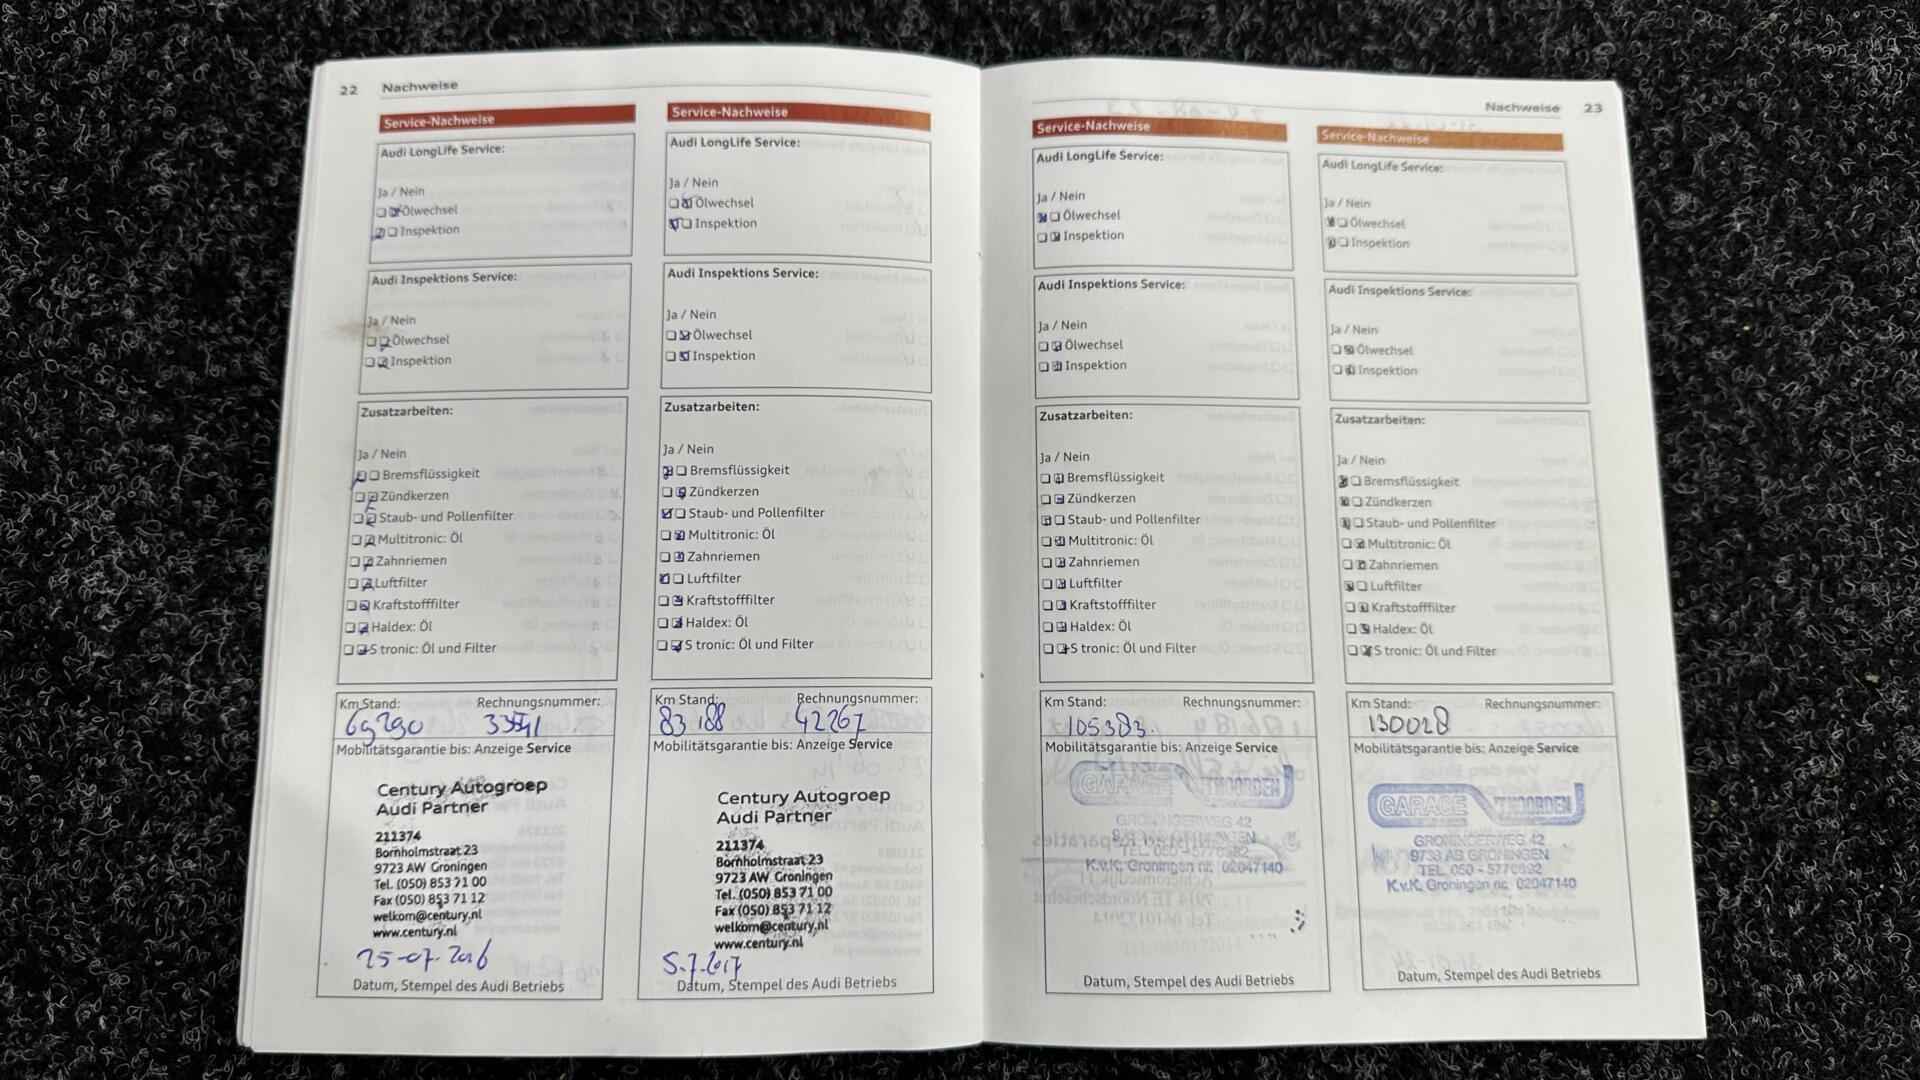 22 Nachweise
Service-Nachweise
Audi LongLife Service:
Ja / Nein
Ölwechsel
Inspektion
Audi Inspektions Service:
Ja / Nein
Ölwechsel
Inspektion
Zusatzarbeiten:
Ja / Nein
Bremsflüssigkeit
Zündkerzen
Staub- und Pollenfilter
Multitronic: Öl
Zahnriemen
Luftfilter
Kraftstofffilter
Haldex: Öl
S tronic: Öl und Filter
Km Stand: Rechnungsnummer:
69290
Mobilitätsgarantie bis: Anzeige Service
Century Autogroep
Audi Partner
211374
Bornholmstraat 23
9723 AW Groningen
Tel. (050) 853 71 00
Fax (050) 853 71 12
welkom@century.nl
www.century.nl
25-07-2016
Datum, Stempel des Audi Betriebs
Service-Nachweise
Audi LongLife Service:
Ja / Nein
Ölwechsel
Inspektion
Audi Inspektions Service:
Ja / Nein
Ölwechsel
Inspektion
Zusatzarbeiten:
Ja / Nein
Bremsflüssigkeit
Zündkerzen
Staub- und Pollenfilter
Multitronic: Öl
Zahnriemen
Luftfilter
Kraftstofffilter
Haldex: Öl
S tronic: Öl und Filter
Km Stand: Rechnungsnummer:
83 188 42267
Mobilitätsgarantie bis: Anzeige Service
Century Autogroep
Audi Partner
211374
Bornholmstraat 23
9723 AW Groningen
Tel. (050) 853 71 00
Fax (050) 853 71 12
welkom@century.nl
www.century.nl
5.7.2017
Datum, Stempel des Audi Betriebs
Nachweise 23
Service-Nachweise
Audi LongLife Service:
Ja / Nein
Ölwechsel
Inspektion
Audi Inspektions Service:
Ja / Nein
Ölwechsel
Inspektion
Zusatzarbeiten:
Ja / Nein
Bremsflüssigkeit
Zündkerzen
Staub- und Pollenfilter
Multitronic: Öl
Zahnriemen
Luftfilter
Kraftstofffilter
Haldex: Öl
S tronic: Öl und Filter
Km Stand: Rechnungsnummer:
105383.
Mobilitätsgarantie bis: Anzeige Service
GARAGE 'T NOORDEN
GRONINGERWEG 42
K.v.K. Groningen nr. 02047140
Datum, Stempel des Audi Betriebs
Service-Nachweise
Audi LongLife Service:
Ja / Nein
Ölwechsel
Inspektion
Audi Inspektions Service:
Ja / Nein
Ölwechsel
Inspektion
Zusatzarbeiten:
Ja / Nein
Bremsflüssigkeit
Zündkerzen
Staub- und Pollenfilter
Multitronic: Öl
Zahnriemen
Luftfilter
Kraftstofffilter
Haldex: Öl
S tronic: Öl und Filter
Km Stand: Rechnungsnummer:
130028
Mobilitätsgarantie bis: Anzeige Service
GARAGE 'T NOORDEN
GRONINGERWEG 42
9738 AB GRONINGEN
K.v.K. Groningen nr. 02047140
Datum, Stempel des Audi Betriebs